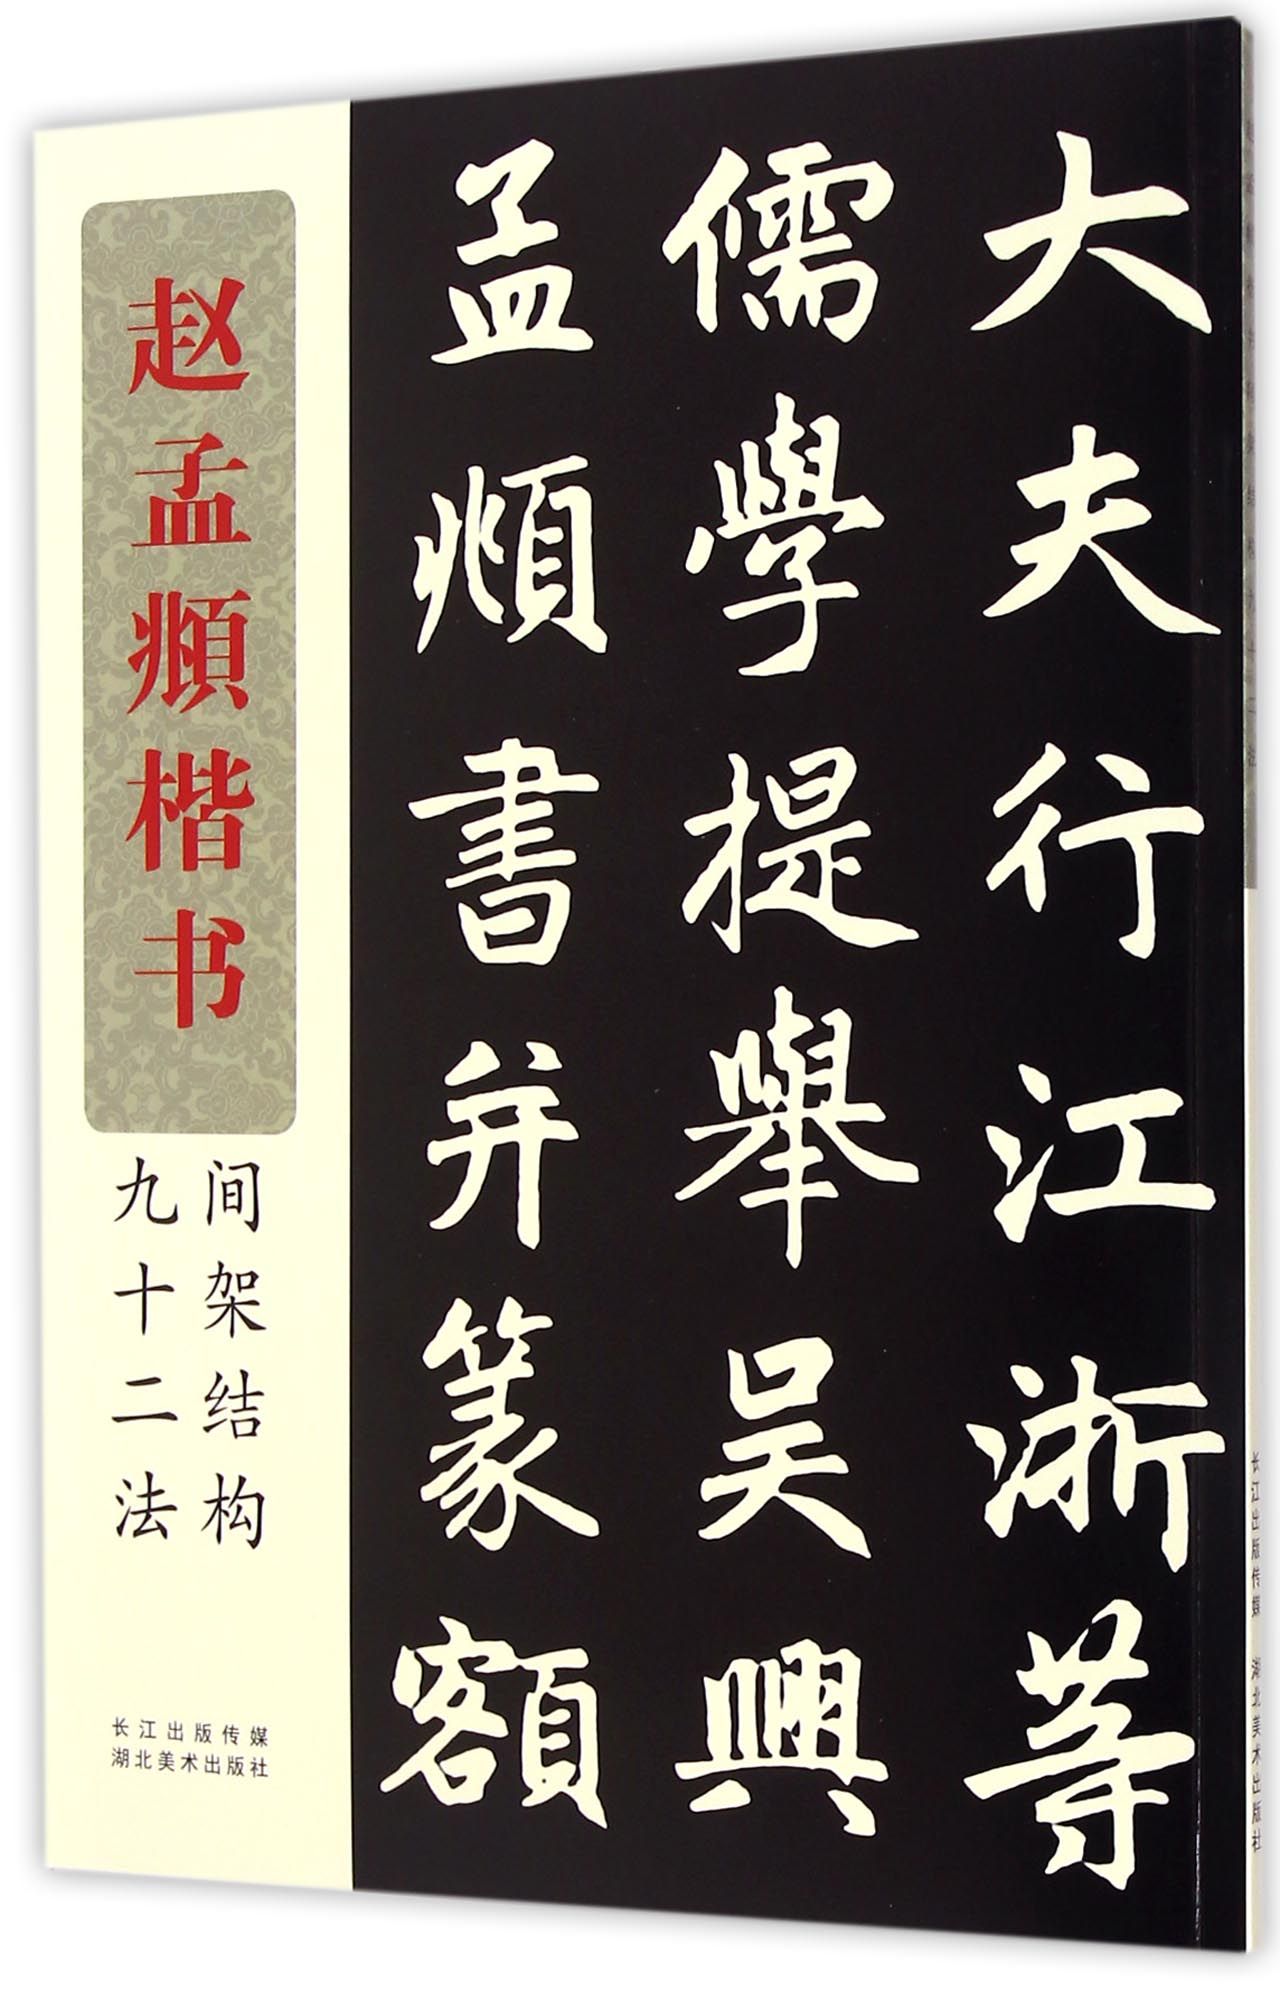 大夫行江浙等
儒學提舉吴興
孟頫書并篆額
赵孟頫楷书
间架结构
九十二法
长江出版传媒
湖北美术出版社
长江出版传媒 湖北美术出版社